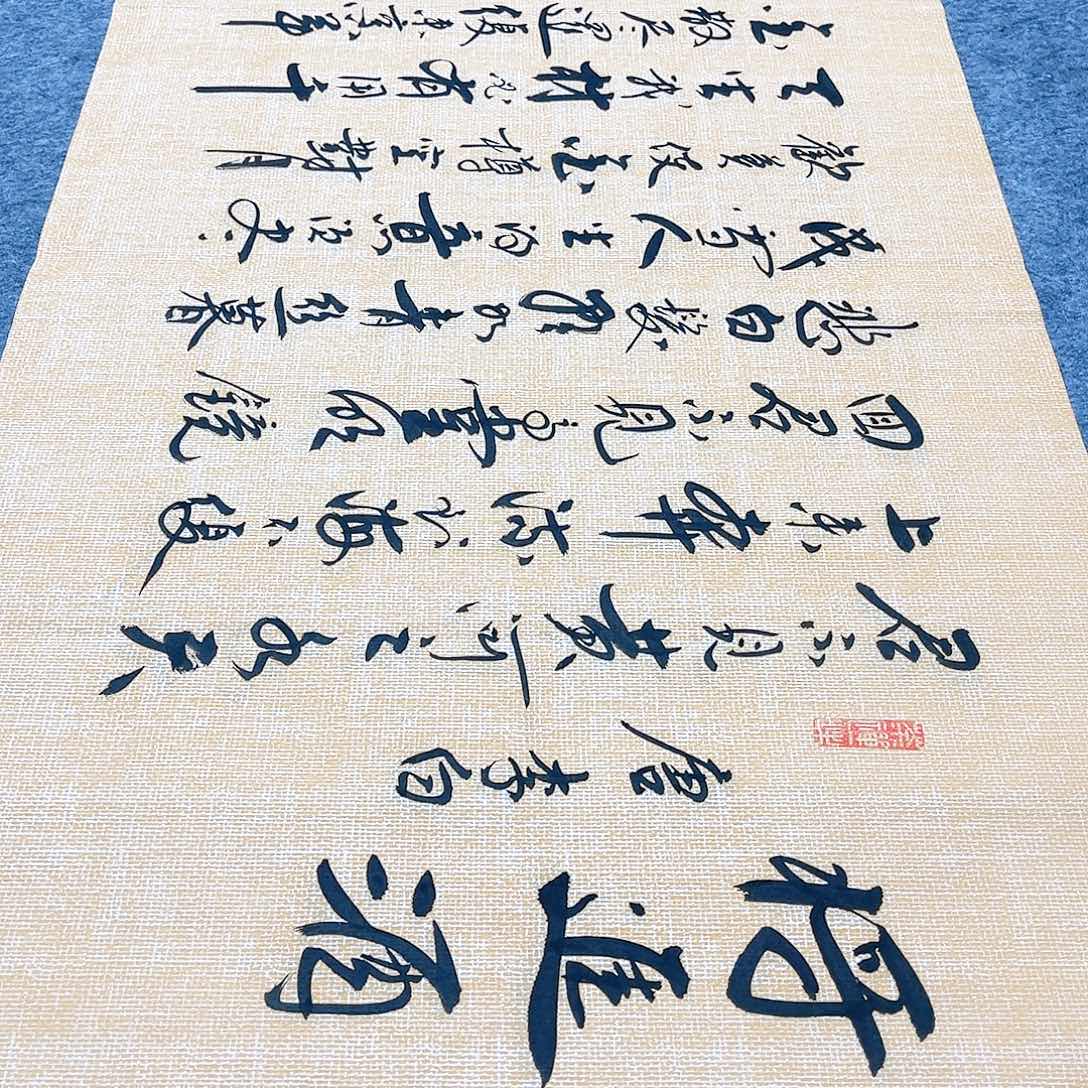 將進酒
唐李白
君不見黃河之水天
上來奔流到海不復
回君不見高堂明鏡
悲白髮朝如青絲暮
成雪人生得意須盡
歡莫使金樽空對月
天生我材必有用千
金散盡還復來烹羊